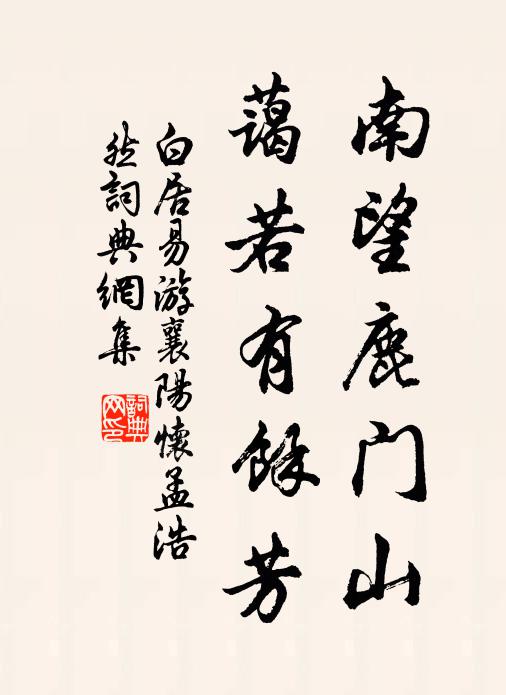 南望鹿门山
藹若有餘芳
白居易游襄陽懷孟浩
然詞典網集
詞典网印